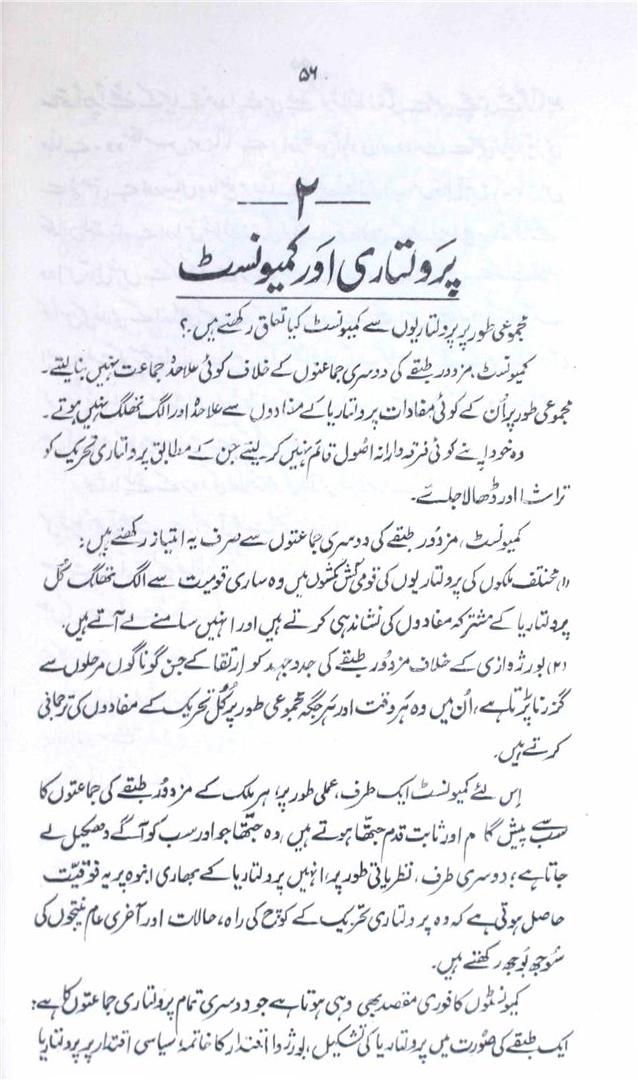 ۵۶
۲
پرولتاری اور کمیونسٹ
مجموعی طور پر پرولتاریوں سے کمیونسٹ کیا تعلق رکھتے ہیں؟
کمیونسٹ، مزدور طبقے کی دوسری جماعتوں کے خلاف کوئی علاحدہ جماعت نہیں بنا لیتے۔
مجموعی طور پر اُن کے کوئی مفادات پرولتاریا کے مفادوں سے علاحدہ اور الگ تھلگ نہیں ہوتے۔
وہ خود اپنے کوئی فرقہ وارانہ اصول قائم نہیں کر لیتے جن کے مطابق پرولتاری تحریک کو
تراشا اور ڈھالا جائے۔
کمیونسٹ، مزدور طبقے کی دوسری جماعتوں سے صرف یہ امتیاز رکھتے ہیں:
(۱) مختلف ملکوں کی پرولتاریوں کی قومی کش مکشوں میں وہ ساری قومیت سے الگ تھلگ کُل
پرولتاریا کے مشترکہ مفادوں کی نشاندہی کرتے ہیں اور انہیں سامنے لے آتے ہیں۔
(۲) بورژوازی کے خلاف مزدور طبقے کی جدوجہد کو ارتقا کے جن گوناگوں مرحلوں سے
گزرنا پڑتا ہے، اُن میں وہ ہر وقت اور ہر جگہ مجموعی طور پر کُل تحریک کے مفادوں کی ترجمانی
کرتے ہیں۔
اِس لئے کمیونسٹ ایک طرف، عملی طور پر، ہر ملک کے مزدور طبقے کی جماعتوں کا
سب سے پیش گام اور ثابت قدم جتھا ہوتے ہیں، وہ جتھا جو اور سب کو آگے دھکیل لے
جاتا ہے؛ دوسری طرف، نظریاتی طور پر، انہیں پرولتاریا کے بھاری انبوہ پر یہ فوقیت
حاصل ہوتی ہے کہ وہ پرولتاری تحریک کے کوچ کی راہ، حالات اور آخری عام نتیجوں کی
سُوجھ بُوجھ رکھتے ہیں۔
کمیونسٹوں کا فوری مقصد بھی وہی ہوتا ہے جو دوسری تمام پرولتاری جماعتوں کا ہے:
ایک طبقے کی صورت میں پرولتاریا کی تشکیل، بورژوا اقتدار کا خاتمہ، سیاسی اقتدار پر پرولتاریا